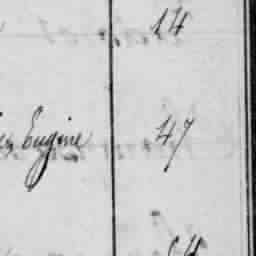 14
Eugine 47